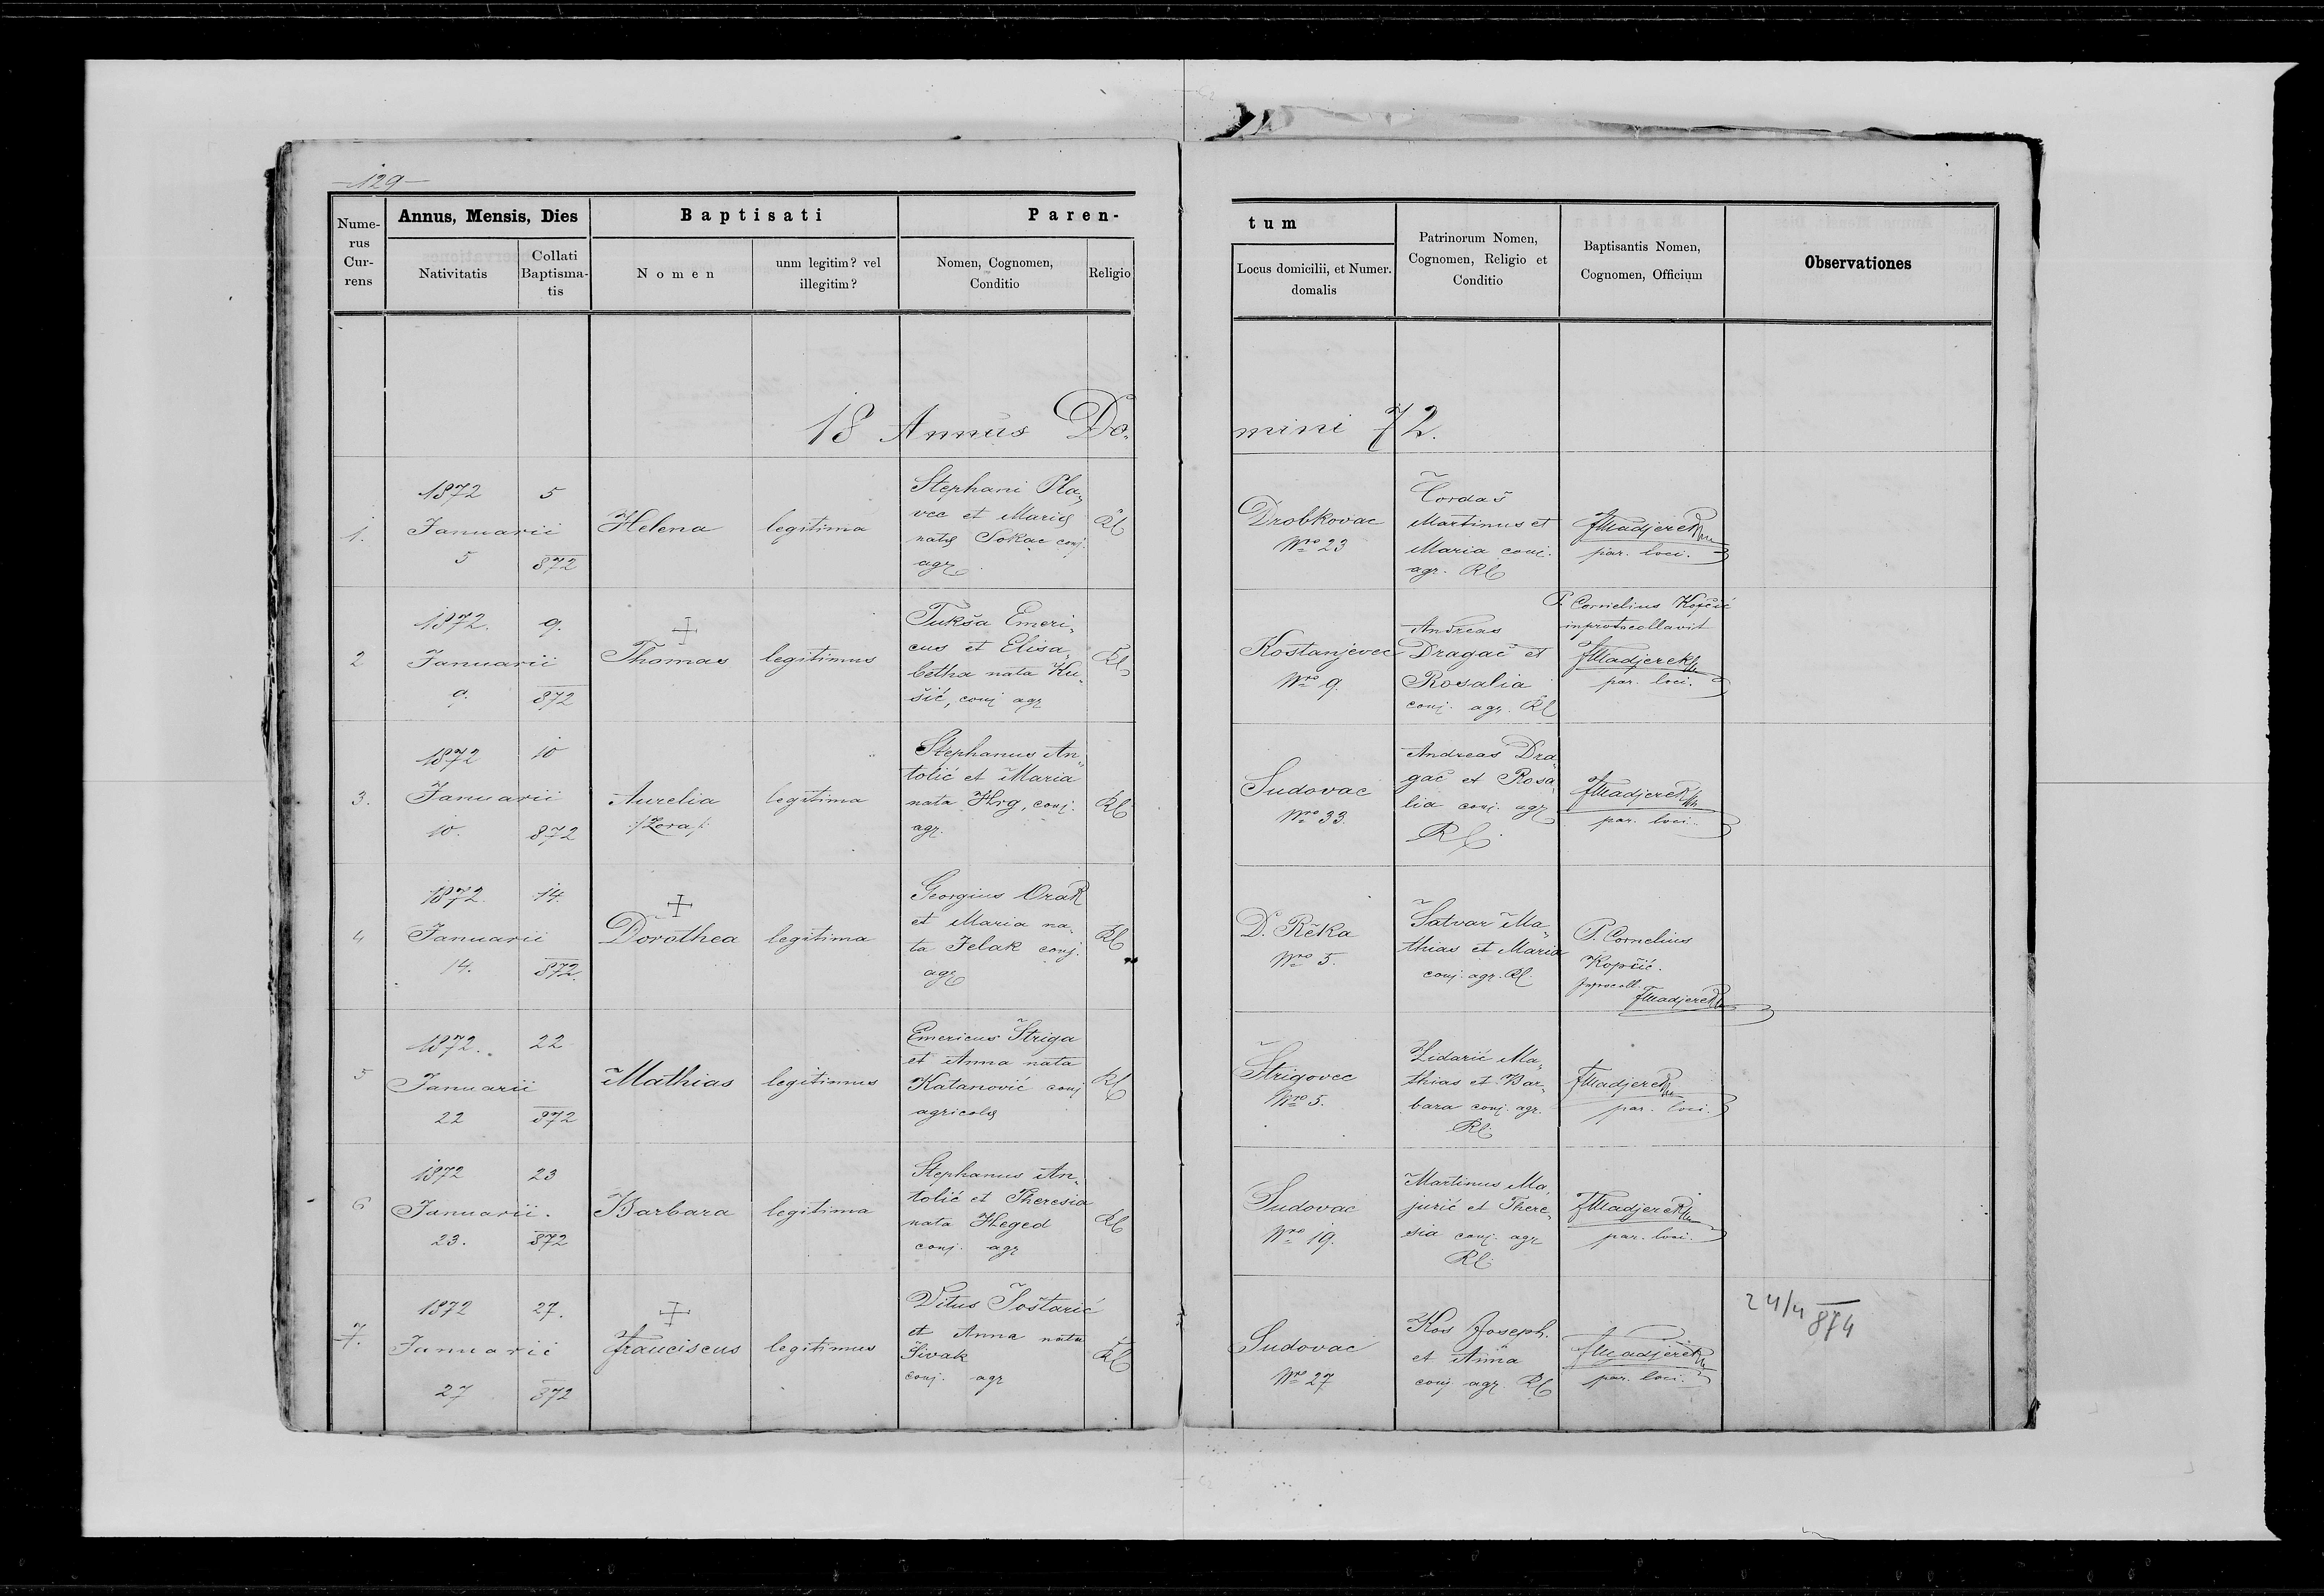 -129-
Nume-
rus
Cur-
rens
Annus, Mensis, Dies
Nativitatis
Collati
Baptisma-
tis
Baptisati
Nomen
unm legitim? vel
illegitim?
Paren-
Nomen, Cognomen,
Conditio
Religio
tum
Locus domicilii, et Numer.
domalis
Patrinorum Nomen,
Cognomen, Religio et
Conditio
Baptisantis Nomen,
Cognomen, Officium
Observationes
18 Annus Do-
mini 72.
1.
1872
Januarii
5
5
872
Helena
legitima
Stephani Pla-
vec et Mariæ
natæ Sokac conj.
agr.
RC
Drobkovac
Nro 23
Čordaš
Martinus et
Maria conj.
agr. RC
FMadjerek
par. loci.
2
1872.
Januarii
9.
9.
872
+
Thomas
legitimus
Tukša Emeri-
cus et Elisa-
betha nata Ku-
šić, conj agr
RC
Kostanjevec
Nro 9.
Andreas
Dragač et
Rosalia
conj. agr. RC
P. Cornelius Kopčić
inprotocollavit
FMadjerek
par. loci.
3.
1872
Januarii
10.
10
872
Aurelia
:/Zora/:
legitima
Stephanus An-
tolić et Maria
nata Hrg, conj.
agr.
RC
Sudovac
Nro 33.
Andreas Dra-
gač et Rosa-
lia conj. agr
RC.
FMadjerek
par. loci.
4
1872.
Januarii
14.
14.
872.
+
Dorothea
legitima
Georgius Orak
et Maria na-
ta Jelak conj.
agr
RC
D. Rěka
Nro 5.
Šatvar Ma-
thias et Maria
conj. agr. RC.
P. Cornelius
Kopčić.
FMadjerek
5
1872.
Januarii
22
22
872
Mathias
legitimus
Emericus Štriga
et Anna nata
Katanović conj
agricolæ
RC
Štrigovec
Nro 5.
Zidarić Ma-
thias et Bar-
bara conj. agr.
RC.
FMadjerek
par. loci.
6
1872
Januarii.
23.
23
872
Barbara
legitima
Stephanus An-
tolić et Theresia
nata Heged
conj. agr
RC
Sudovac
Nro 19.
Martinus Ma-
jurić et There-
sia conj. agr
RC.
FMadjerek
par. loci.
7.
1872
Januarii
27
27.
872
+
Franciscus
legitimus
Vitus Šoštarić
et Anna nata
Šivak
conj. agr
RC
Sudovac
Nro 27
Kos Joseph.
et Anna
conj agr. RC
FMadjerek
par. loci.
24/4 874